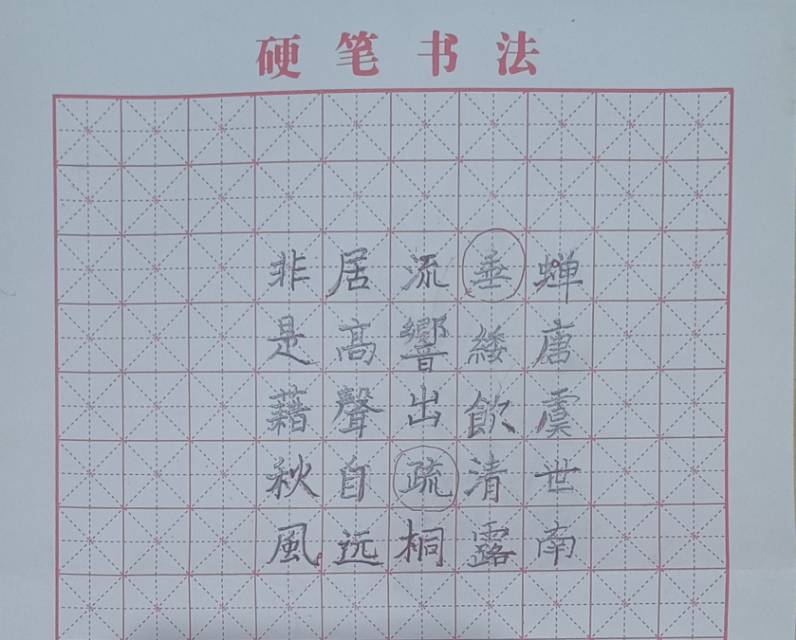 硬笔书法
蝉唐虞世南
垂緌飲清露
流響出疏桐
居高聲自远
非是藉秋風